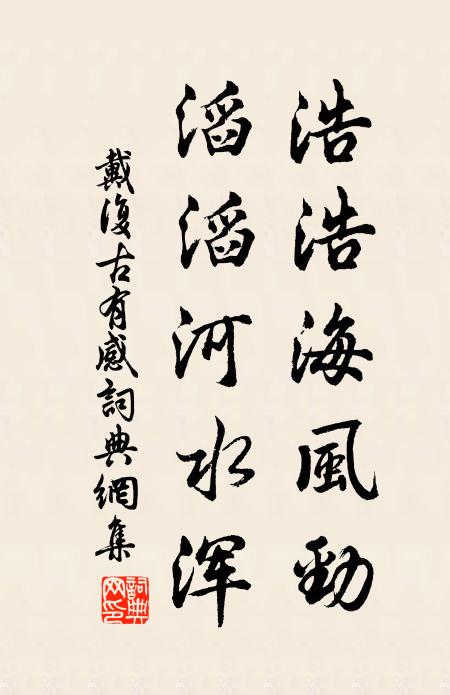 浩浩海風勁
滔滔河水浑
戴復古有感詞典網集
詞典网印